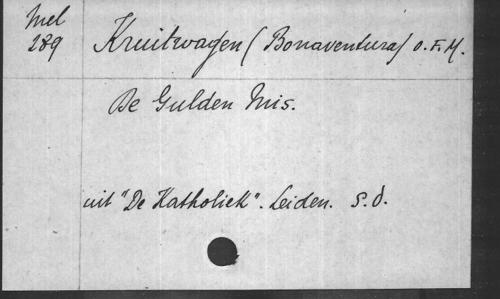 Mel
289
Kruitwagen (Bonaventura) O.F.M.
De Gulden Mis.
uit "De Katholiek". Leiden. S.d.